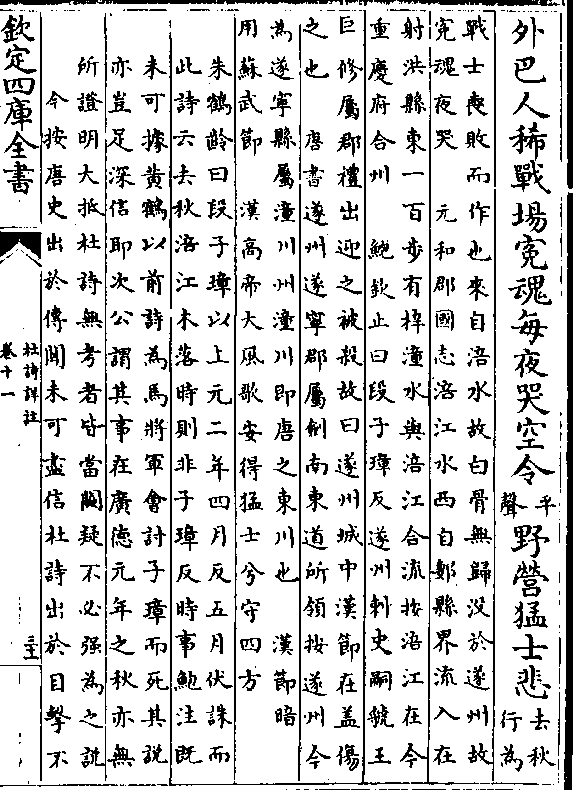 外巴人稀戰場寃魂每夜哭空令平聲野營猛士悲去秋行為
戰士喪敗而作也來自涪水故白骨無歸没於遂州故
寃魂夜哭　元和郡國志涪江水西自郪縣界流入在
射洪縣東一百步有梓潼水與涪江合流按涪江在今
重慶府合州　鮑欽止曰段子璋反遂州刺史嗣虢王
巨修屬郡禮出迎之被殺故曰遂州城中漢節在蓋傷
之也　唐書遂州遂寧郡屬劍南東道所領按遂州今
為遂寧縣屬潼川州潼川即唐之東川也　漢節暗
用蘇武節　漢高帝大風歌安得猛士兮守四方
朱鶴齡曰段子璋以上元二年四月反五月伏誅而
此詩云去秋涪江木落時則非子璋反時事鮑注既
未可據黄鶴以前詩為馬將軍會討子璋而死其說
亦豈足深信即次公謂其事在廣德元年之秋亦無
所證明大抵杜詩無考者皆當闕疑不必强為之説
今按唐史出於傳聞未可盡信杜詩出於目擊不
欽定四庫全書
杜詩詳註
卷十一
三十二